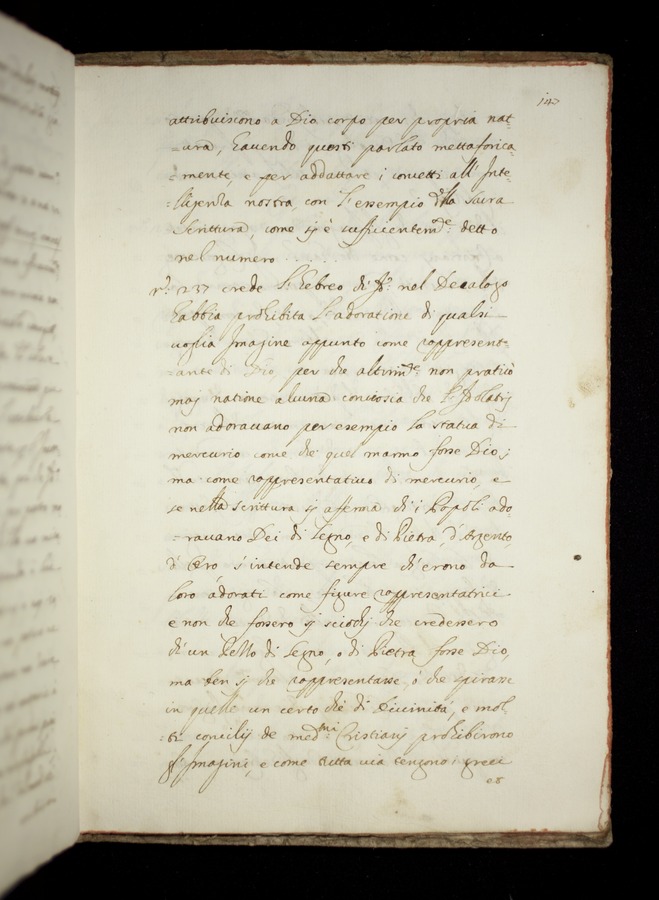 147
attribuiscono a Dio corpo per propria nat-
=ura, havendo questi parlato mettaforica-
=mente, e per addattare i concetti all' Inte-
=lligenza nostra, con l'essempio della Sacra
Scrittura, come si è sufficientemte: detto
nel numero . . . . .
no: 237 crede l'hebreo ch' Jo: nel Decalogo
habbia prohibita l'adoratione di qualsi-
voglia Imagine appunto come rappresent-
=ante di Dio, per che altrimte: non praticò
maj natione alcuna conciosia che l'Idolatrij
non adoravano per esempio la statua di
mercurio come che quel marmo fosse Dio;
ma come rappresentativo di mercurio, e
se nella scrittura si afferma ch' i Popoli ado-
=ravano Dei di Legno, e di Pietra, d'Argento,
d' Oro s'intende sempre ch' erono da
loro adorati come figure rappresentatrici
e non che fossero sj sciochj che credessero
ch' un Pezzo di Legno, o di Pietra fosse Dio,
ma ben sj che rappresentasse, ò che spirasse
in quelle un certo che di Divinità, e mol-
=ti concilij de medmi: Cristianj prohibirono
gl'Imagini, e come tutta via tengono i greci
es